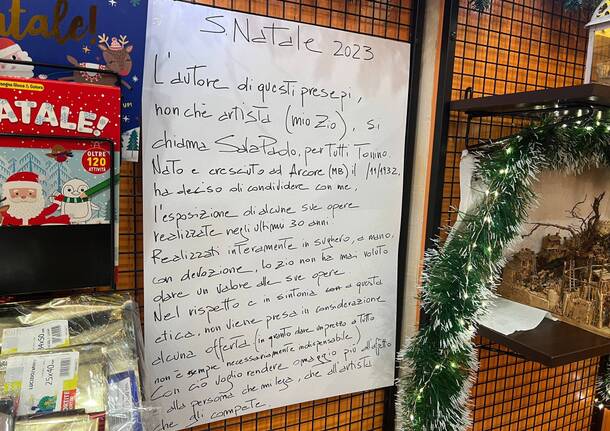 atale!
NATALE!
OLTRE
120
ATTIVITÀ
S. NATALE 2023
L'autore di questi presepi,
nonchè artista (mio zio), si
chiama Sala Paolo, per tutti Tonino.
Nato e cresciuto ad Arcore (MB) il /11/1932.
ha deciso di condividere con me,
l'esposizione di alcune sue opere
realizzate negli ultimi 30 anni.
Realizzati interamente in sughero, a mano,
con devozione, lo zio non ha mai voluto
dare un valore alle sue opere.
Nel rispetto e in sintonia con questa
etica, non viene presa in considerazione
alcuna offerta (in quanto dare un prezzo a tutto
non è sempre necessariamente indispensabile)
Con ciò voglio rendere omaggio più all'affetto
alla persona che mi lega, che all'artista
che gli compete.
25x40